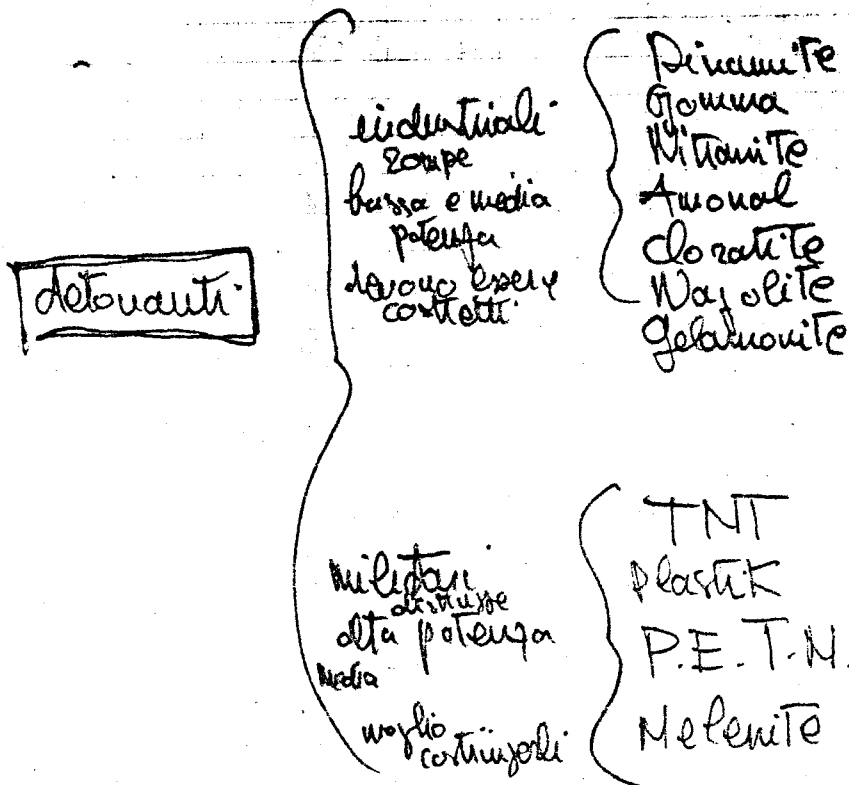 detonanti
industriali
rompe
bassa e media
potenza
devono essere
costretti
Dinamite
Gomma
Nittanite
Amonal
Cloratite
Wasolite
Gelamonite
militari
distrugge
alta potenza
media
meglio
costringerli
TNT
Plastik
P.E.T.N.
Melenite